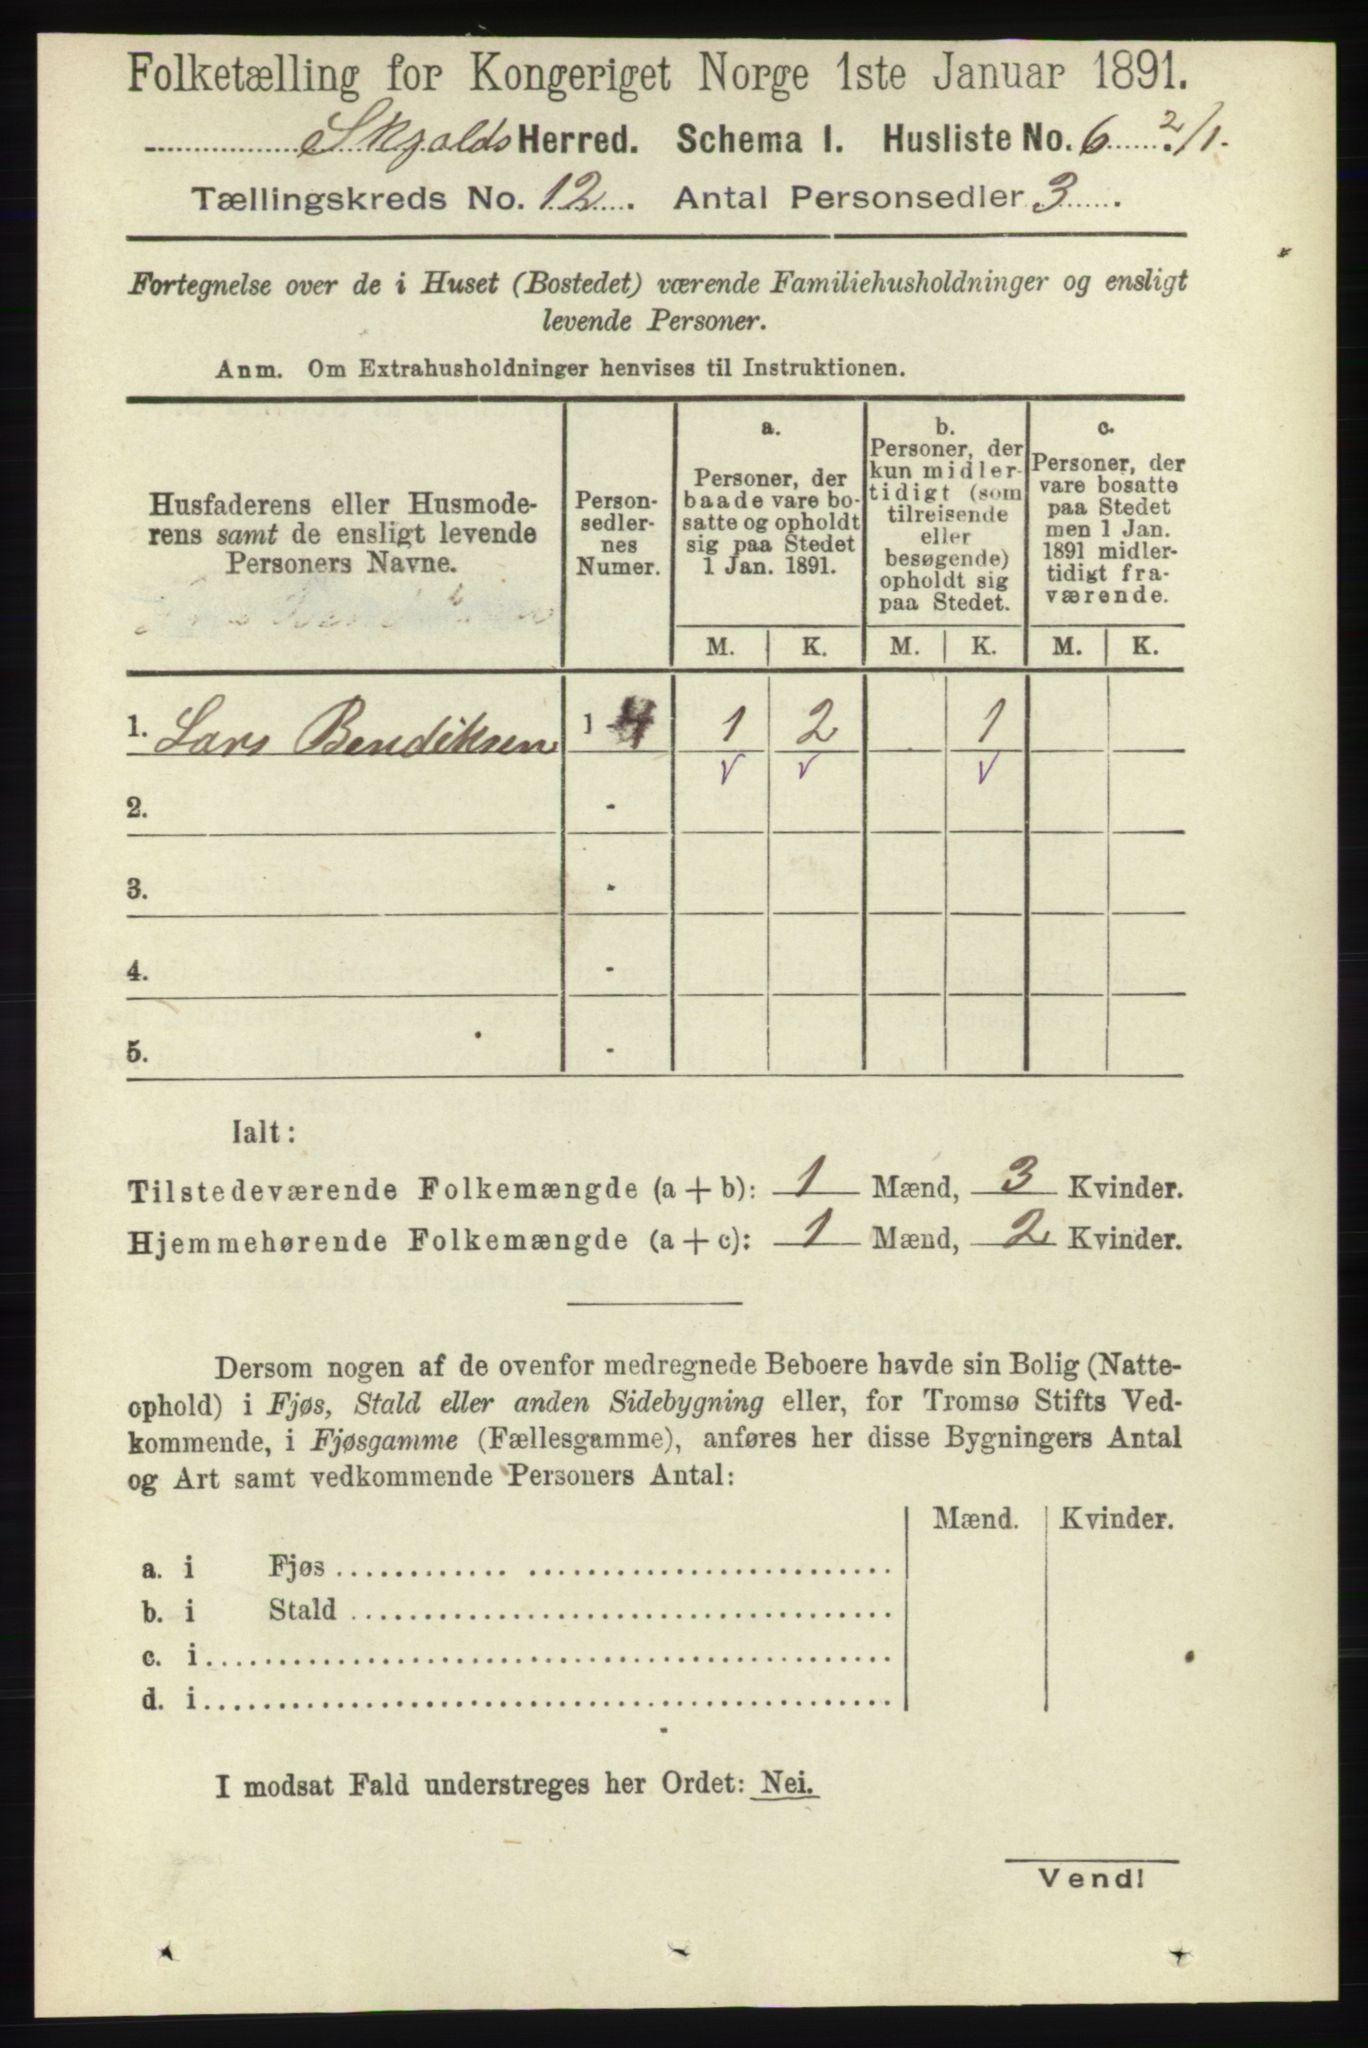 Folketælling for Kongeriget Norge 1ste Januar 1891.
Skjolds Herred. Schema I. Husliste No. 6 2/1.
Tællingskreds No. 12. Antal Personsedler 3.
Fortegnelse over de i Huset (Bostedet) værende Familiehusholdninger og ensligt
levende Personer.
Anm. Om Extrahusholdninger henvises til Instruktionen.
Husfaderens eller Husmode-
rens samt de ensligt levende
Personers Navne.
Person-
sedler-
nes
Numer.
a.
Personer, der
baade vare bo-
satte og opholdt
sig paa Stedet
1 Jan. 1891.
b.
Personer, der
kun midler-
tidigt (som
tilreisende
eller
besøgende)
opholdt sig
paa Stedet.
c.
Personer, der
vare bosatte
paa Stedet
men 1 Jan.
1891 midler-
tidigt fra-
værende.
M. K. M. K. M. K.
1. Lars Bendiksen 1 - 4 1 2 1
v v v
2. -
3. -
4. -
5. -
Ialt:
Tilstedeværende Folkemængde (a + b): 1 Mænd, 3 Kvinder.
Hjemmehørende Folkemængde (a + c): 1 Mænd, 2 Kvinder.
Dersom nogen af de ovenfor medregnede Beboere havde sin Bolig (Natte-
ophold) i Fjøs, Stald eller anden Sidebygning eller, for Tromsø Stifts Ved-
kommende, i Fjøsgamme (Fællesgamme), anføres her disse Bygningers Antal
og Art samt vedkommende Personers Antal:
Mænd. Kvinder.
a. i Fjøs
b. i Stald
c. i
d. i
I modsat Fald understreges her Ordet: Nei.
Vend!